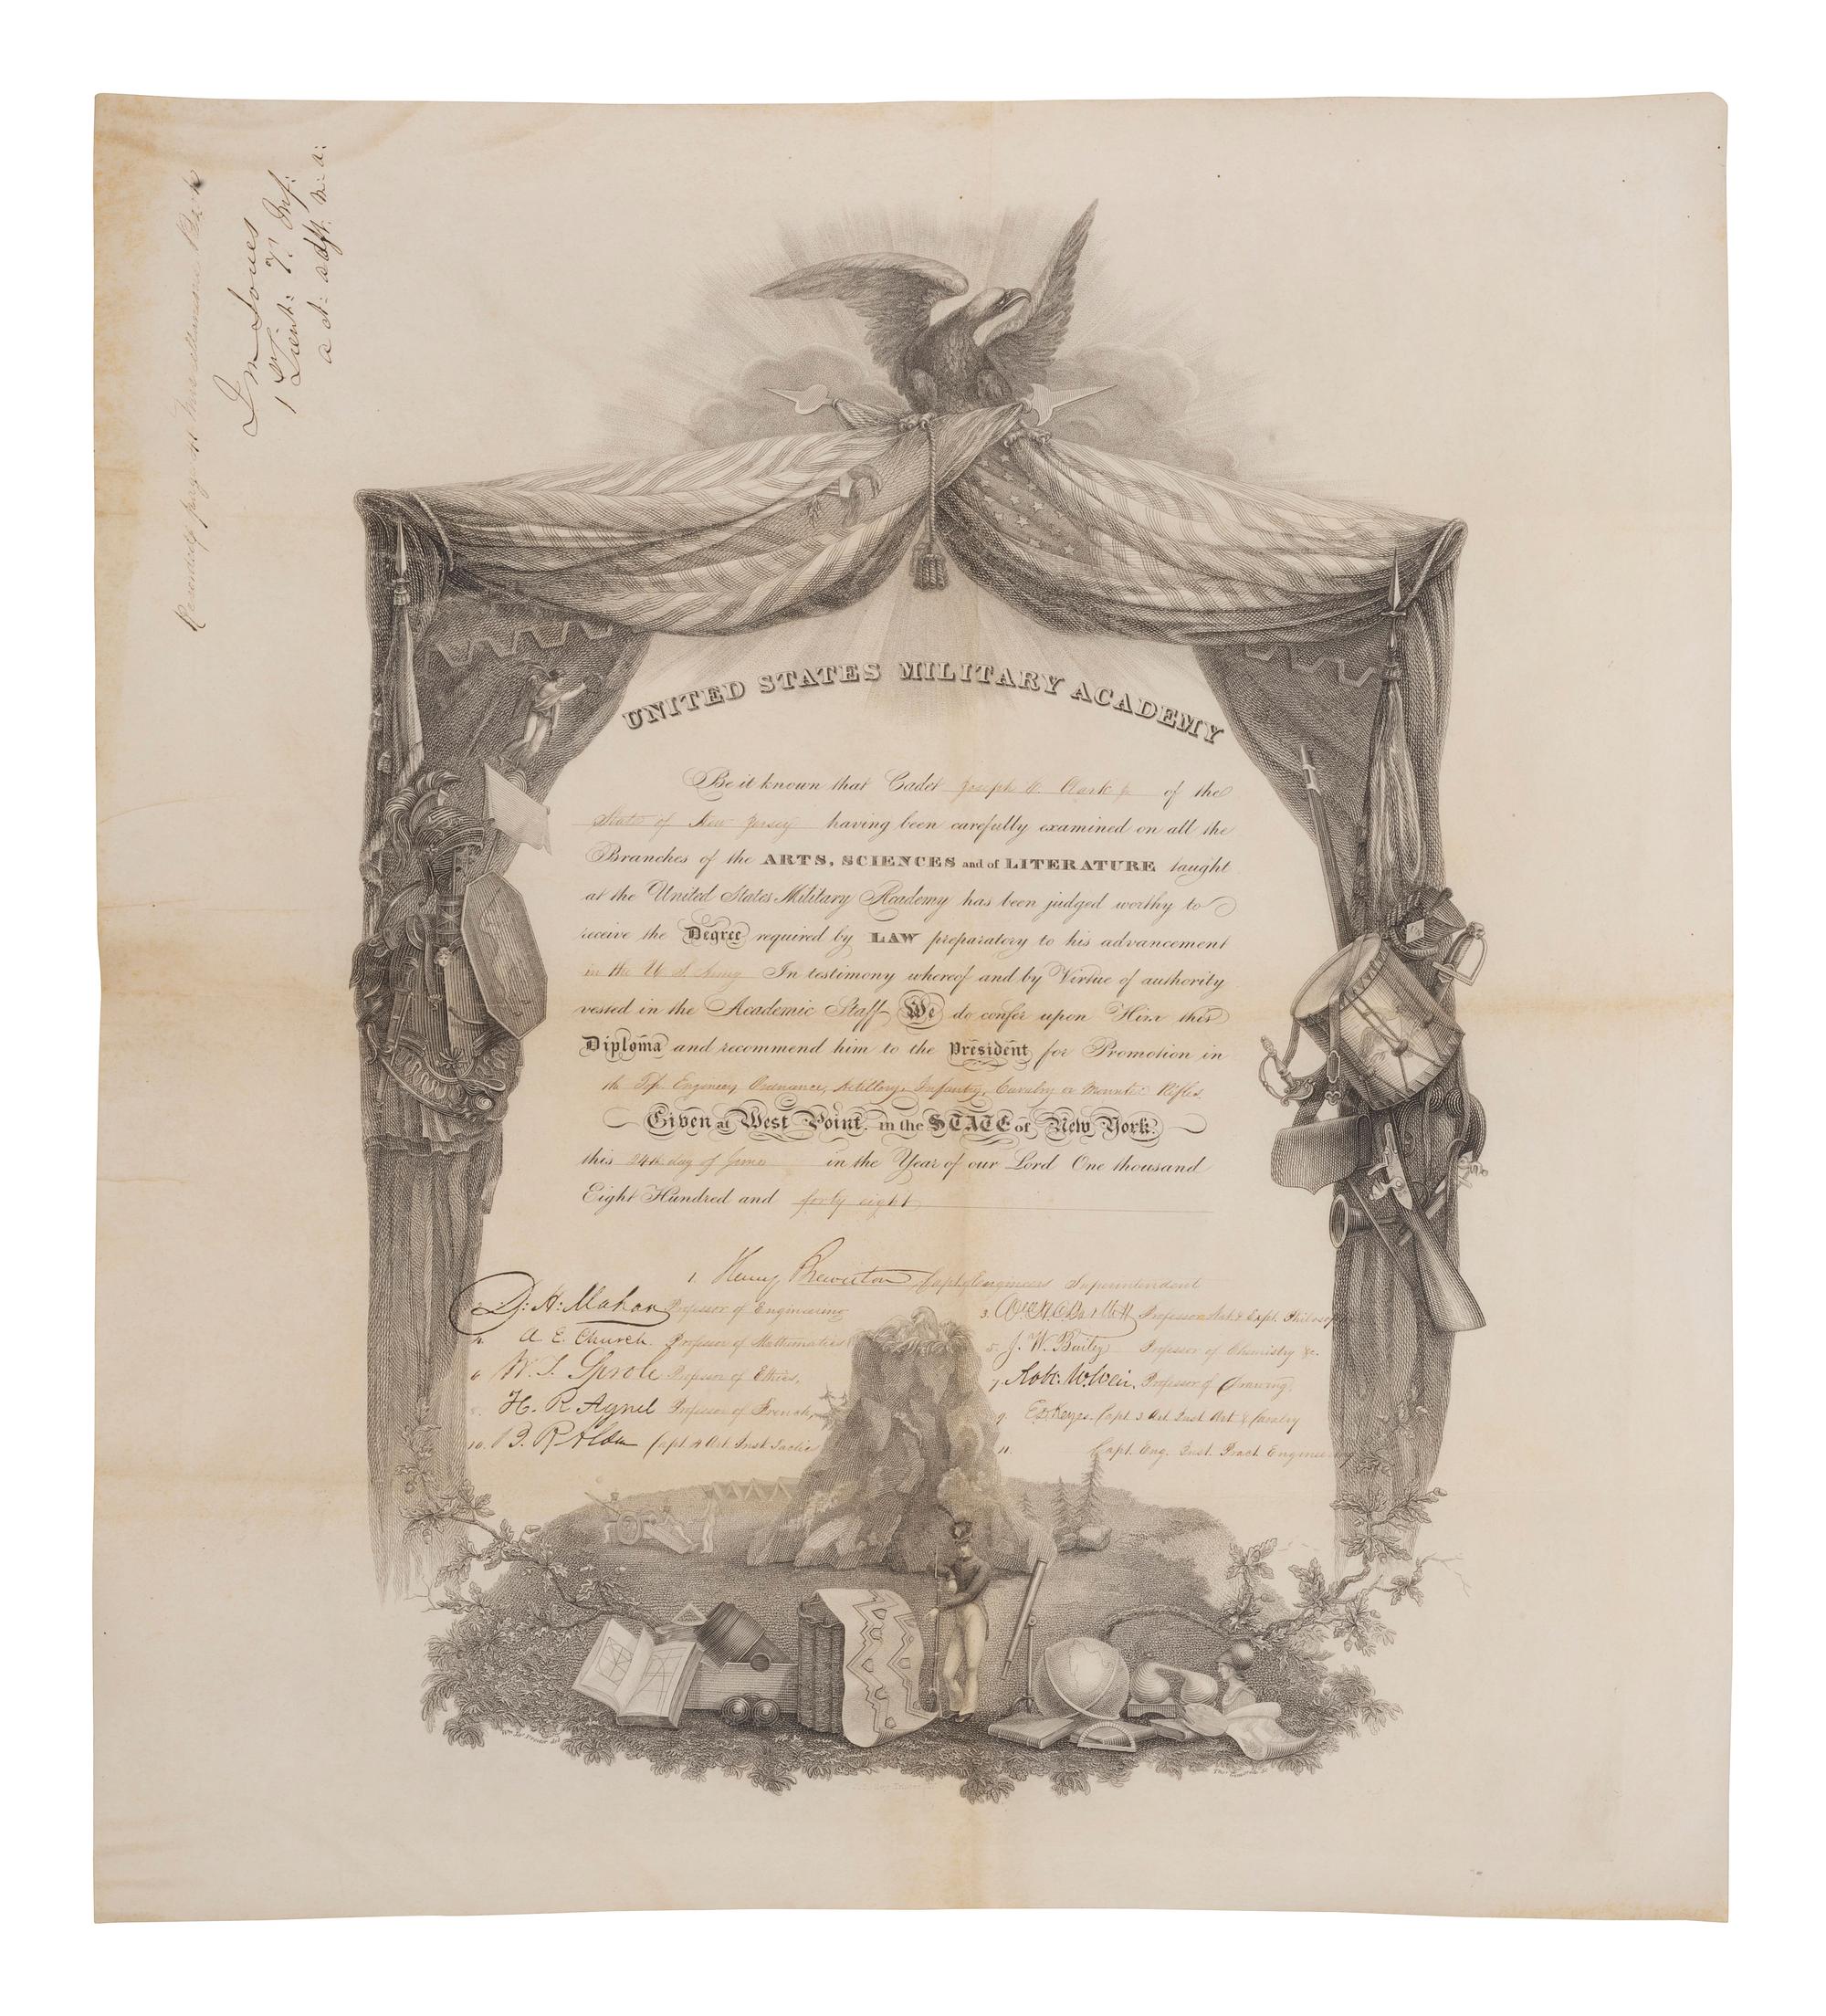 Recorded page 41 Miscellaneous Book
J M Jones
1st Lieut: 7th Inf:
act: adjt. M: A:
UNITED STATES MILITARY ACADEMY
Be it known that Cadet Joseph C. Clark jr of the
State of New Jersey having been carefully examined on all the
Branches of the ARTS, SCIENCES and of LITERATURE taught
at the United States Military Academy has been judged worthy to
receive the Degree required by LAW preparatory to his advancement
in the U S Army In testimony whereof and by Virtue of authority
vested in the Academic Staff We do confer upon Him this
Diploma and recommend him to the President for Promotion in
the Top. Engineers, Ordnance, Artillery, Infantry, Cavalry or Mounted Rifles.
Given at West Point, in the STATE of New York.
this 24th day of June in the Year of our Lord One thousand
Eight Hundred and forty eight
1. Henry Brewerton, Capt. of Engineers Superintendent
2. D. H. Mahan Professor of Engineering
3. Wm. H. C. Bartlett Professor Nat. & Expl. Philosop
4. A. E. Church. Professor of Mathematics
5. J. W. Bailey Professor of Chemistry &c.
6 W. T. Sprole Professor of Ethics.
7. Robt. W. Weir, Professor of Drawing.
8. H. R. Agnel Professor of French,
9. E D Keyes. Capt. 3 Art. Inst. Art. & Cavalry
10. B. R Alden Capt. 4 Art. Inst. Tactic
11. Capt. Eng. Inst. Pract. Engineering